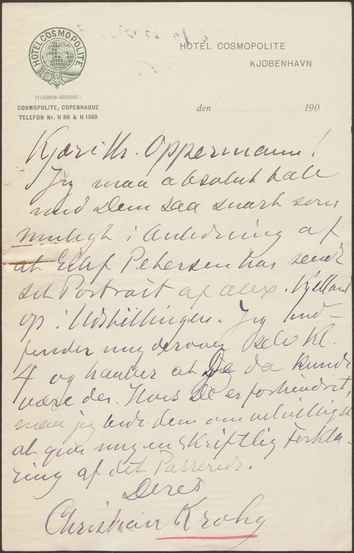 HOTEL COSMOPOLITE
HOTEL COSMOPOLITE
KJØBENHAVN
COSMOPOLITE, COPENHAGUE
den 190
Kjære Hr. Oppermann!
Jeg maa absolut tale
med Dem saa snart som
muligt i Anledning af
at Eilif Petersen har sendt
sit Portrait af Alex. Kielland
op i Udstillingen. Jeg ind-
finder mig derover selv Kl.
4 og haaber at De da kunde
være der. Hvis De er forhindret,
maa jeg bede dem om velvilligst
at give mig en skriftlig Forkla-
ring af det Passerede.
Deres
Christian Krohg